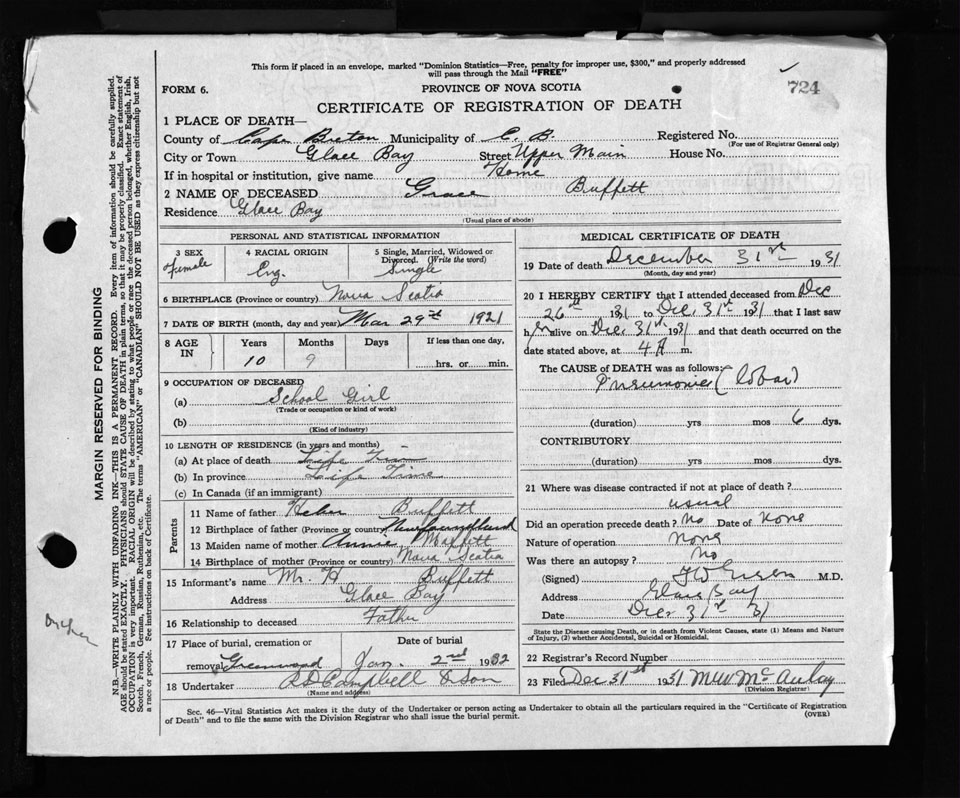 This form if placed in an envelope, marked "Dominion Statistics—Free, penalty for improper use, $300," and properly addressed
will pass through the Mail "FREE"
FORM 6.
PROVINCE OF NOVA SCOTIA
724
CERTIFICATE OF REGISTRATION OF DEATH
1 PLACE OF DEATH—
County of Cape Breton Municipality of C. B. Registered No.
(For use of Registrar General only)
City or Town Glace Bay Street Upper Main House No.
If in hospital or institution, give name Home
2 NAME OF DECEASED Grace Buffett
Residence Glace Bay
(Usual place of abode)
PERSONAL AND STATISTICAL INFORMATION
3 SEX Female
4 RACIAL ORIGIN Eng.
5 Single, Married, Widowed or Divorced. (Write the word) Single
6 BIRTHPLACE (Province or country) Nova Scotia
7 DATE OF BIRTH (month, day and year) Mar 29th 1921
8 AGE IN Years Months Days If less than one day,
10 9 hrs. or min.
9 OCCUPATION OF DECEASED
(a) School Girl
(Trade or occupation or kind of work)
(b)
(Kind of industry)
10 LENGTH OF RESIDENCE (in years and months)
(a) At place of death Life Time
(b) In province Life Time
(c) In Canada (if an immigrant)
Parents
11 Name of father Buffett
12 Birthplace of father (Province or country) Newfoundland
13 Maiden name of mother Annie
14 Birthplace of mother (Province or country) Nova Scotia
15 Informant's name Mr. H Buffett
Address Glace Bay
16 Relationship to deceased Father
17 Place of burial, cremation or Date of burial
removal Greenwood Jan. 2nd 1932
18 Undertaker Campbell & Son
(Name and address)
MEDICAL CERTIFICATE OF DEATH
19 Date of death December 31st 1931
(Month, day and year)
20 I HEREBY CERTIFY that I attended deceased from Dec
26th 1931 to Dec. 31st 1931 that I last saw
her alive on Dec 31st 1931 and that death occurred on the
date stated above, at 4 A m.
The CAUSE of DEATH was as follows:
Pneumonia (lobar)
(duration) yrs mos 6 dys.
CONTRIBUTORY
(duration) yrs mos dys.
21 Where was disease contracted if not at place of death?
usual
Did an operation precede death? No Date of None
Nature of operation None
Was there an autopsy? No
(Signed) M.D.
Address Glace Bay
Date Dec 31st 31
State the Disease causing Death, or in death from Violent Causes, state (1) Means and Nature
of Injury, (2) whether Accidental, Suicidal or Homicidal.
22 Registrar's Record Number
23 Filed Dec 31st 1931 McAulay
(Division Registrar)
Sec. 46—Vital Statistics Act makes it the duty of the Undertaker or person acting as Undertaker to obtain all the particulars required in the "Certificate of Registration
of Death" and to file the same with the Division Registrar who shall issue the burial permit.
(OVER)
MARGIN RESERVED FOR BINDING
N.B.—WRITE PLAINLY WITH UNFADING INK—THIS IS A PERMANENT RECORD. Every item of information should be carefully supplied.
AGE should be stated EXACTLY. PHYSICIANS should STATE CAUSE OF DEATH in plain terms, so that it may be properly classified. Exact statement of
OCCUPATION is very important. RACIAL ORIGIN will be described by stating to what people or race the deceased person belonged, whether English, Irish,
Scotch, French, German, Russian, Ruthenian, etc. The terms "AMERICAN" or "CANADIAN" SHOULD NOT BE USED as they express citizenship but not
a race or people. See instructions on back of Certificate.